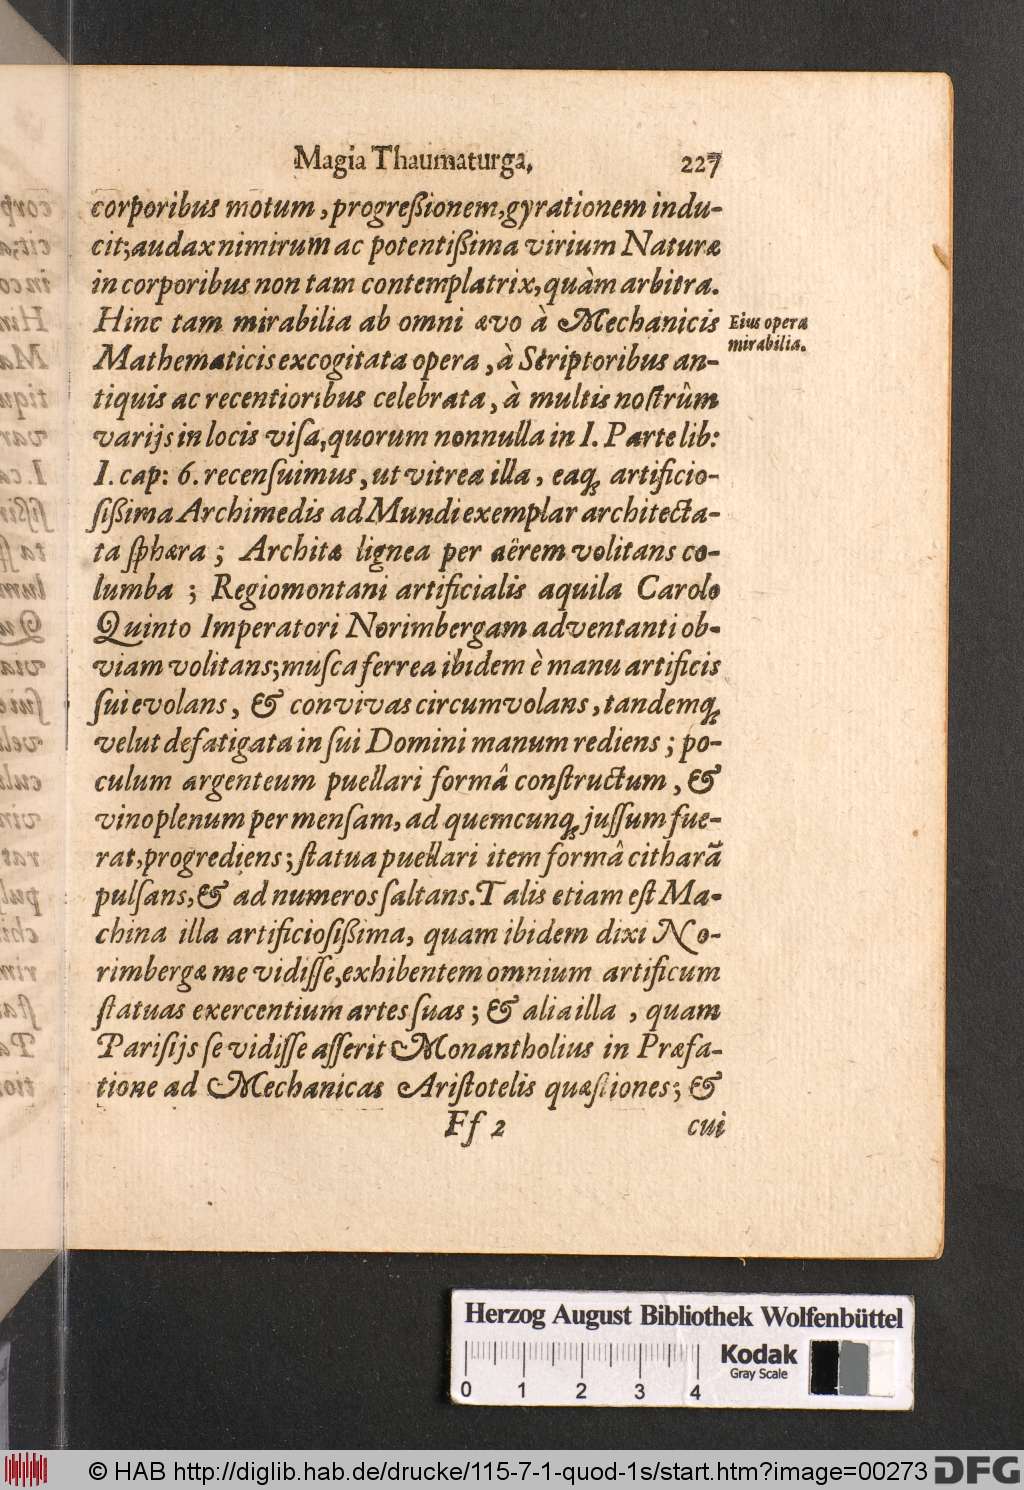 Magia Thaumaturga. 227
corporibus motum, progreßionem, gyrationem indu-
cit; audax nimirum ac potentißima virium Naturæ
in corporibus non tam contemplatrix, quàm arbitra.
Hinc tam mirabilia ab omni ævo à Mechanicis
Mathematicis excogitata opera, à Scriptoribus an-
tiquis ac recentioribus celebrata, à multis noſtrûm
varijs in locis viſa, quorum nonnulla in I. Parte lib:
I. cap: 6. recenſuimus, ut vitrea illa, eaq́ꝫ artificio-
ſißima Archimedis ad Mundi exemplar architecta-
ta ſphæra; Architæ lignea per aërem volitans co-
lumba; Regiomontani artificialis aquila Carolo
Quinto Imperatori Norimbergam adventanti ob-
viam volitans; muſca ferrea ibidem è manu artificis
ſui evolans, & convivas circumvolans, tandemq́ꝫ
velut defatigata in ſui Domini manum rediens; po-
culum argenteum puellari formâ conſtructum, &
vino plenum per menſam, ad quemcunq́ꝫ juſſum fue-
rat, progrediens; ſtatua puellari item formâ citharã
pulſans, & ad numeros ſaltans. Talis etiam eſt Ma-
china illa artificioſißima, quam ibidem dixi No-
rimbergæ me vidiſſe, exhibentem omnium artificum
ſtatuas exercentium artes ſuas; & alia illa, quam
Pariſijs ſe vidiſſe aſſerit Monantholius in Præfa-
tione ad Mechanicas Ariſtotelis quæſtiones; &
Ff 2 cui
Eius opera
mirabilia.
Herzog August Bibliothek Wolfenbüttel
Kodak
Gray Scale
0 1 2 3 4
© HAB http://diglib.hab.de/drucke/115-7-1-quod-1s/start.htm?image=00273 DFG